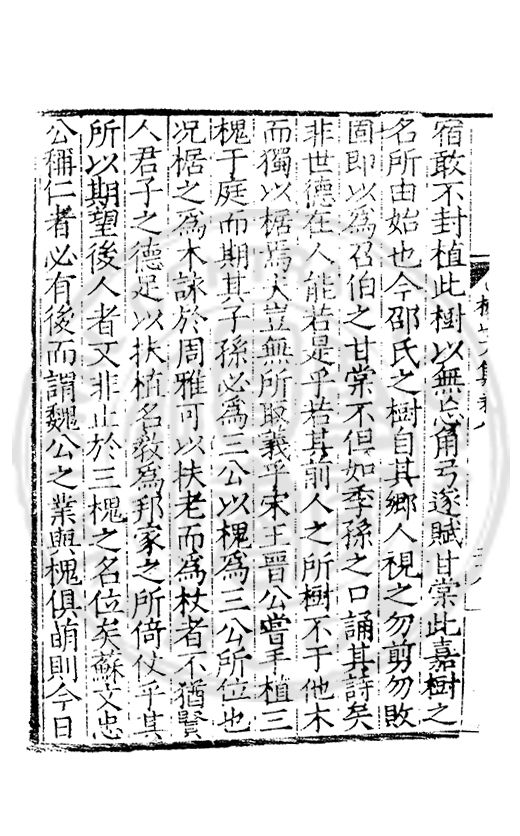 宿敢不封植此樹以無忘角弓遂賦甘棠此嘉樹之
名所由始也今邵氏之樹自其鄉人視之勿剪勿敗
固即以為召伯之甘棠不但如季孫之口誦其詩矣
非世德在人能若是乎若其前人之所樹不于他木
而獨以椐焉夫豈無所取義乎宋王晉公嘗手植三
槐于庭而期其子孫必為三公以槐為三公所位也
况椐之為木詠於周雅可以扶老而為杖者不猶賢
人君子之德足以扶植名教為邦家之所倚仗乎其
所以期望後人者又非止於三槐之名位矣蘇文忠
公稱仁者必有後而謂魏公之業與槐俱萌則今日